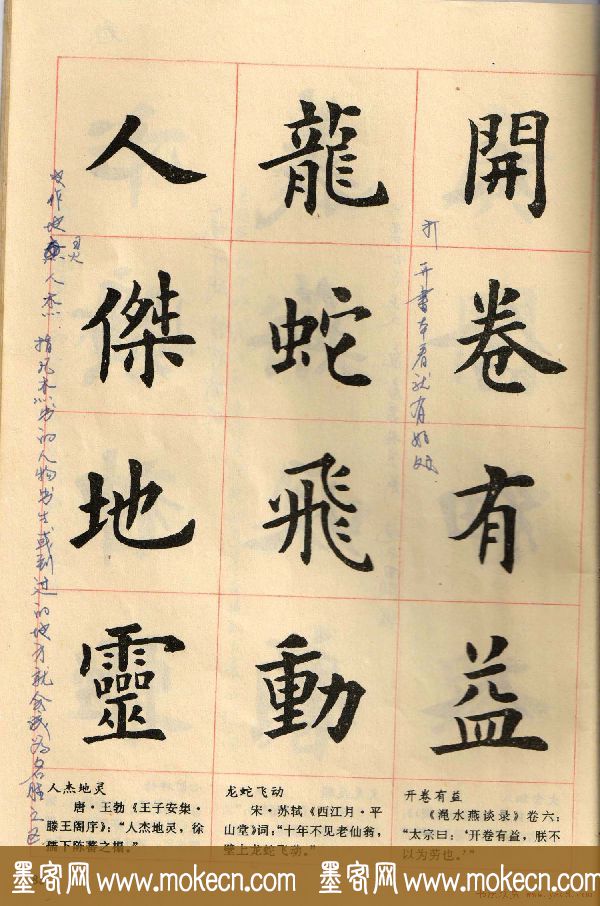 開卷有益
龍蛇飛動
人傑地靈
打开书本看就有好处
又作地灵人杰. 指凡杰出的人物出生或到过的地方就会成为名胜之区
开卷有益
《渑水燕谈录》卷六：
“太宗曰：‘开卷有益，朕不
以为劳也。’”
龙蛇飞动
宋·苏轼《西江月·平
山堂》词：“十年不见老仙翁，
壁上龙蛇飞动。”
人杰地灵
唐·王勃《王子安集·
滕王阁序》：“人杰地灵，徐
孺下陈蕃之榻。”
墨客网 www.mokecn.com 墨客网 www.mokecn.com